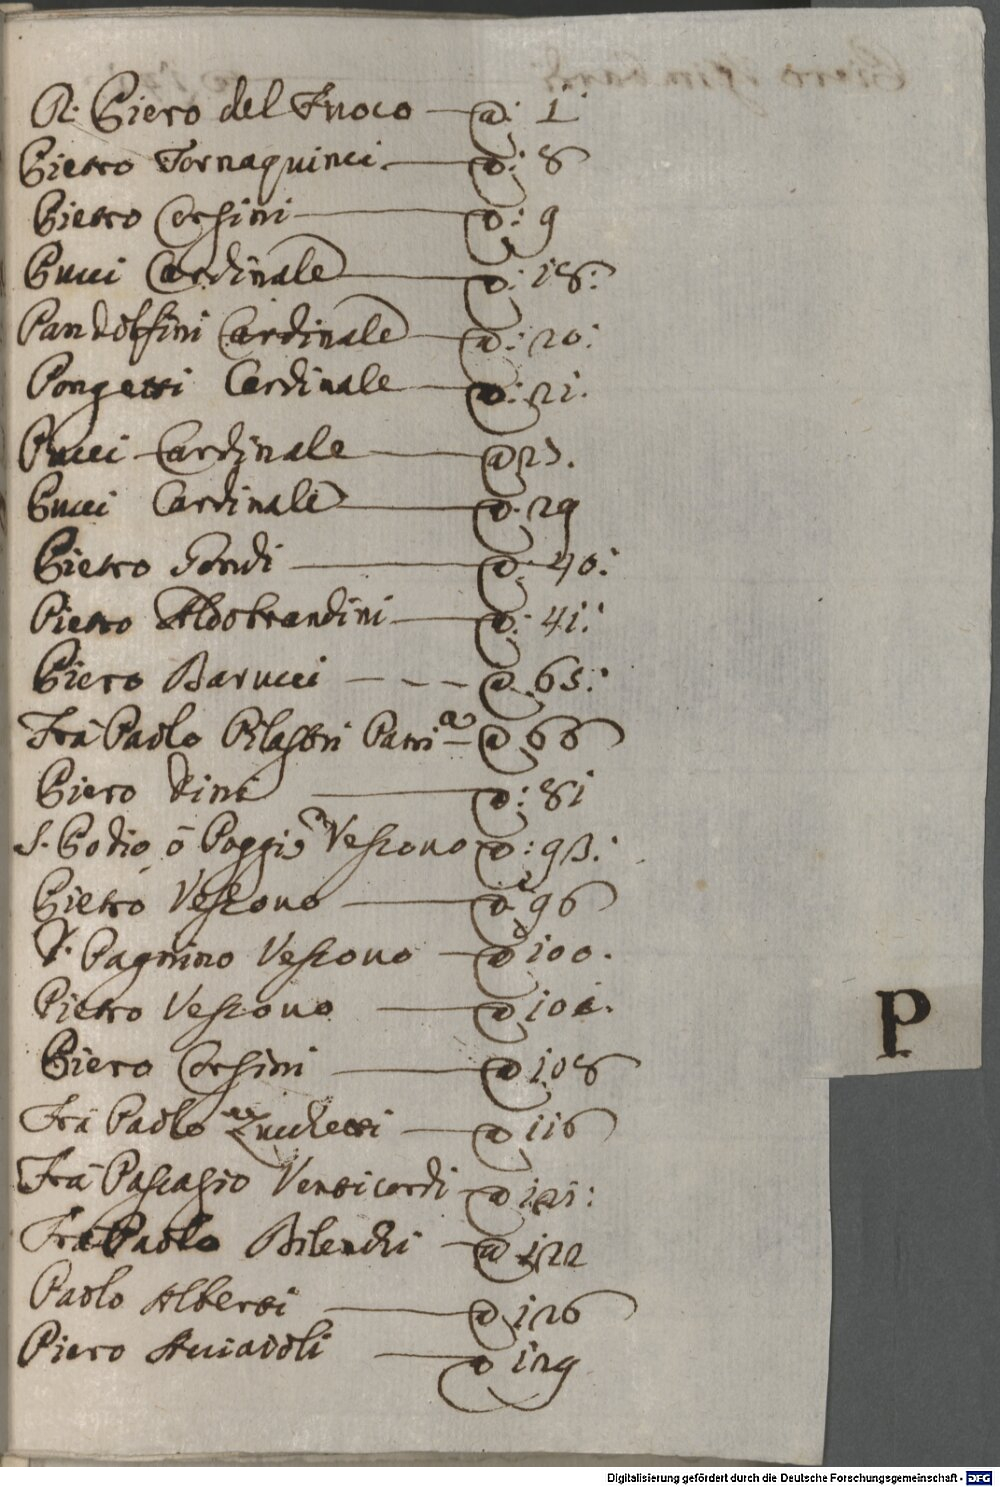 R. Piero del Fuoco — a: 1
Pietro Tornaquinci — a: 8
Pietro Corsini — a: 9
Pucci Cardinale — a: 18:
Pandolfini Cardinale — a: 20:
Pongetti Cardinale — a: 21:
Pucci Cardinale — a 23.
Pucci Cardinale — a: 29
Pietro Gondi — a: 40:
Pietro Aldobrandini — a: 41:
Piero Barucci - - - a. 65:
Frà Paolo Pilastri Patri ca — a 66
Piero Dini — a: 81
S. Podio ò Poggio Vescovo a: 93:
Pietro Vescovo — a 96
Pagnino Vescovo — a 100.
Pietro Vescovo — a
Piero Corsini — a 108
Frà Paolo Zucchetti — a 116
Frà Pascasio Venticordi a 121:
Frà Paolo Bilenchi — a 122
Paolo Alberti — a 126
Piero Acciaioli — a 129
P
Digitalisierung gefördert durch die Deutsche Forschungsgemeinschaft - DFG